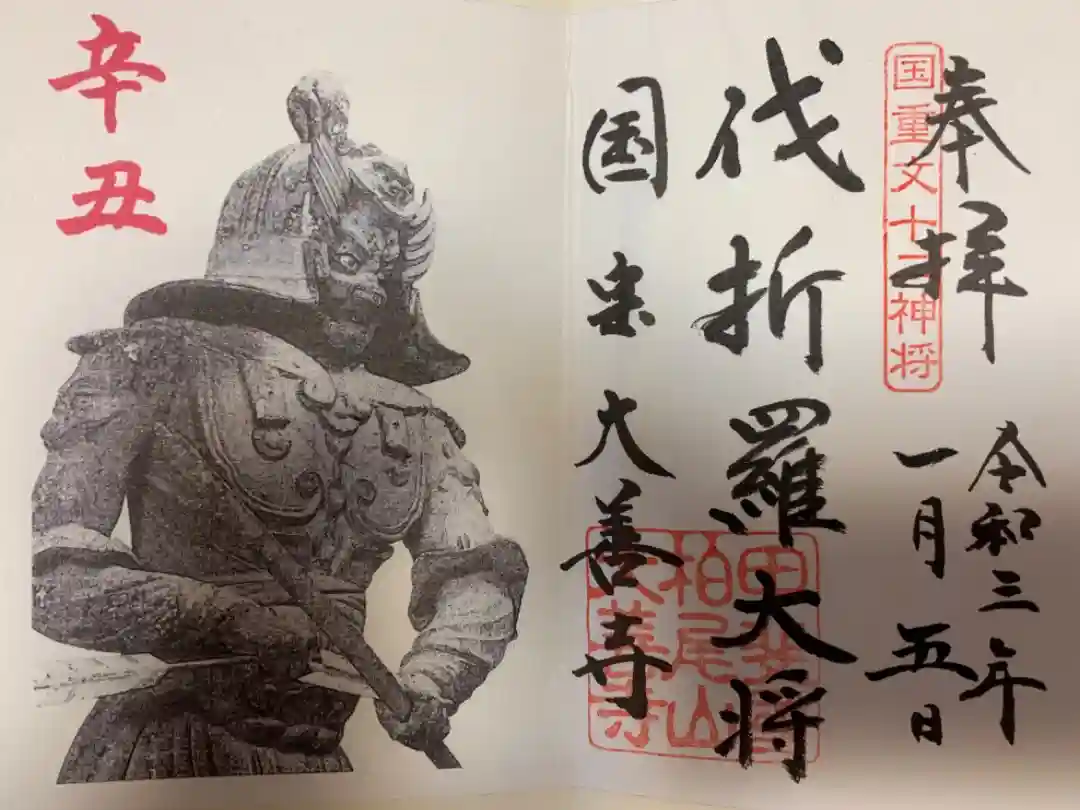 奉拝
国重文十二神将
令和三年
一月五日
伐折羅大将
国宝大善寺
甲斐国
柏尾山
大善寺
辛丑